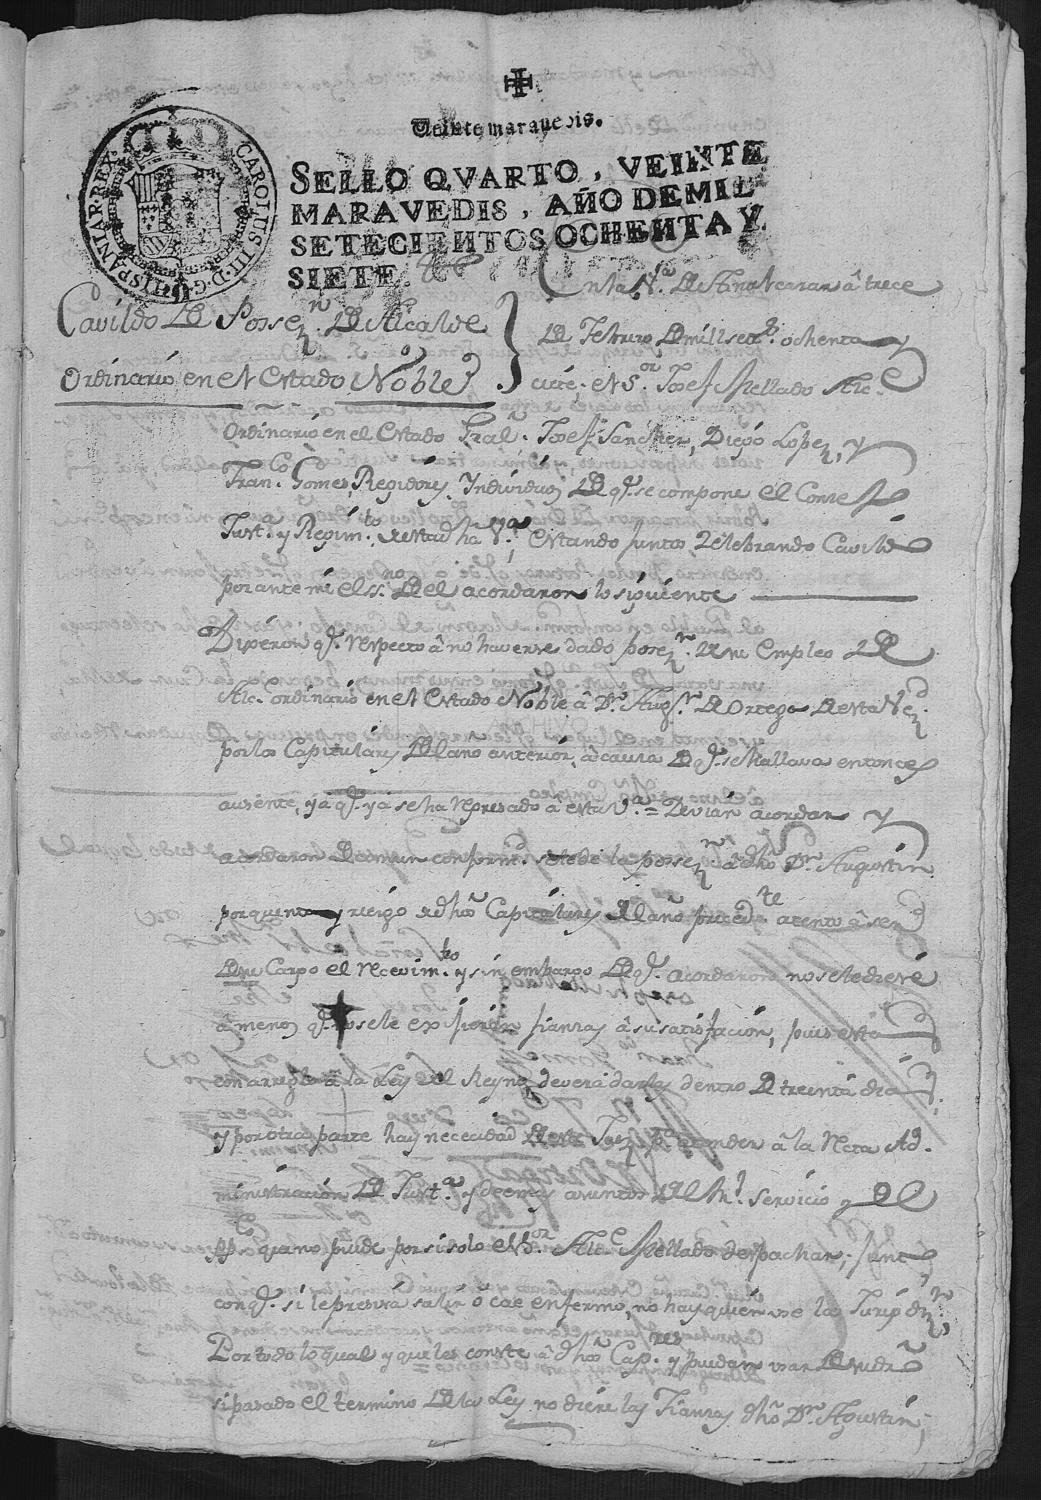 Veinte maravedis.
SELLO QVARTO, VEINTE
MARAVEDIS, AÑO DE MIL
SETECIENTOS OCHENTA Y
SIETE.
CAROLUS III. D. G. HISPANIAR. REX.
En la V.ª de
â trece
Cavildo de Posse.n de Alcalde
Ordinario en el Estado Noble
de Febrero de mill sett.s ochenta y
siete; el S.or Josef Mellado Alc.e
Ordinario en el Estado Gral. Josef Sanchez, Diego Lopez, y
Fran.co Gomes, Regidores, Individuos de q.e se compone el Conse.o
Just.a y Regim.to de esta dha V.a; estando juntos zelebrando Cavildo
por ante mi el ss.no de el acordaron lo siguiente
Dixeron q.e respecto â no haverse dado poses.n de su Empleo de
Alc.e ordinario en el Estado Noble â D.n Aug.n de Ortega de esta Vez.d
por los Capitulares del ano anterior, â causa de q.e se hallava entonces
ausente, y â q.e ya se ha regresado â esta V.a = Devian acordar y
acordaron de comun conform.d se le dè la posse.n â dho D.n Augustin
por quenta y riesgo de dhos Capitulares del año preced.te atento â ser
de su Cargo el recevim.to y sin embargo de q.e acordaron no se le diere
â menos q.e no se le
fianzas â su satisfacion, pues esta
con arreglo â la Ley del Reyno deverá darlas dentro de treinta dias;
y por otra parte hay necesidad de este Juez p.a atender â la recta Ad-
ministracion de Just.a y demas asuntos del R.l servicio y del
pp.co que no puede por si solo el S.or Alc.e Mellado despachar; junto
con q.e si le precisa salir ô cae enfermo, no hay quien use la Jurisd.on;
Por todo lo qual y que les conste â dhos Cap.res y puedan usar de su dro
si pasado el termino de la Ley no diere las Fianzas dho D.n Agustin;